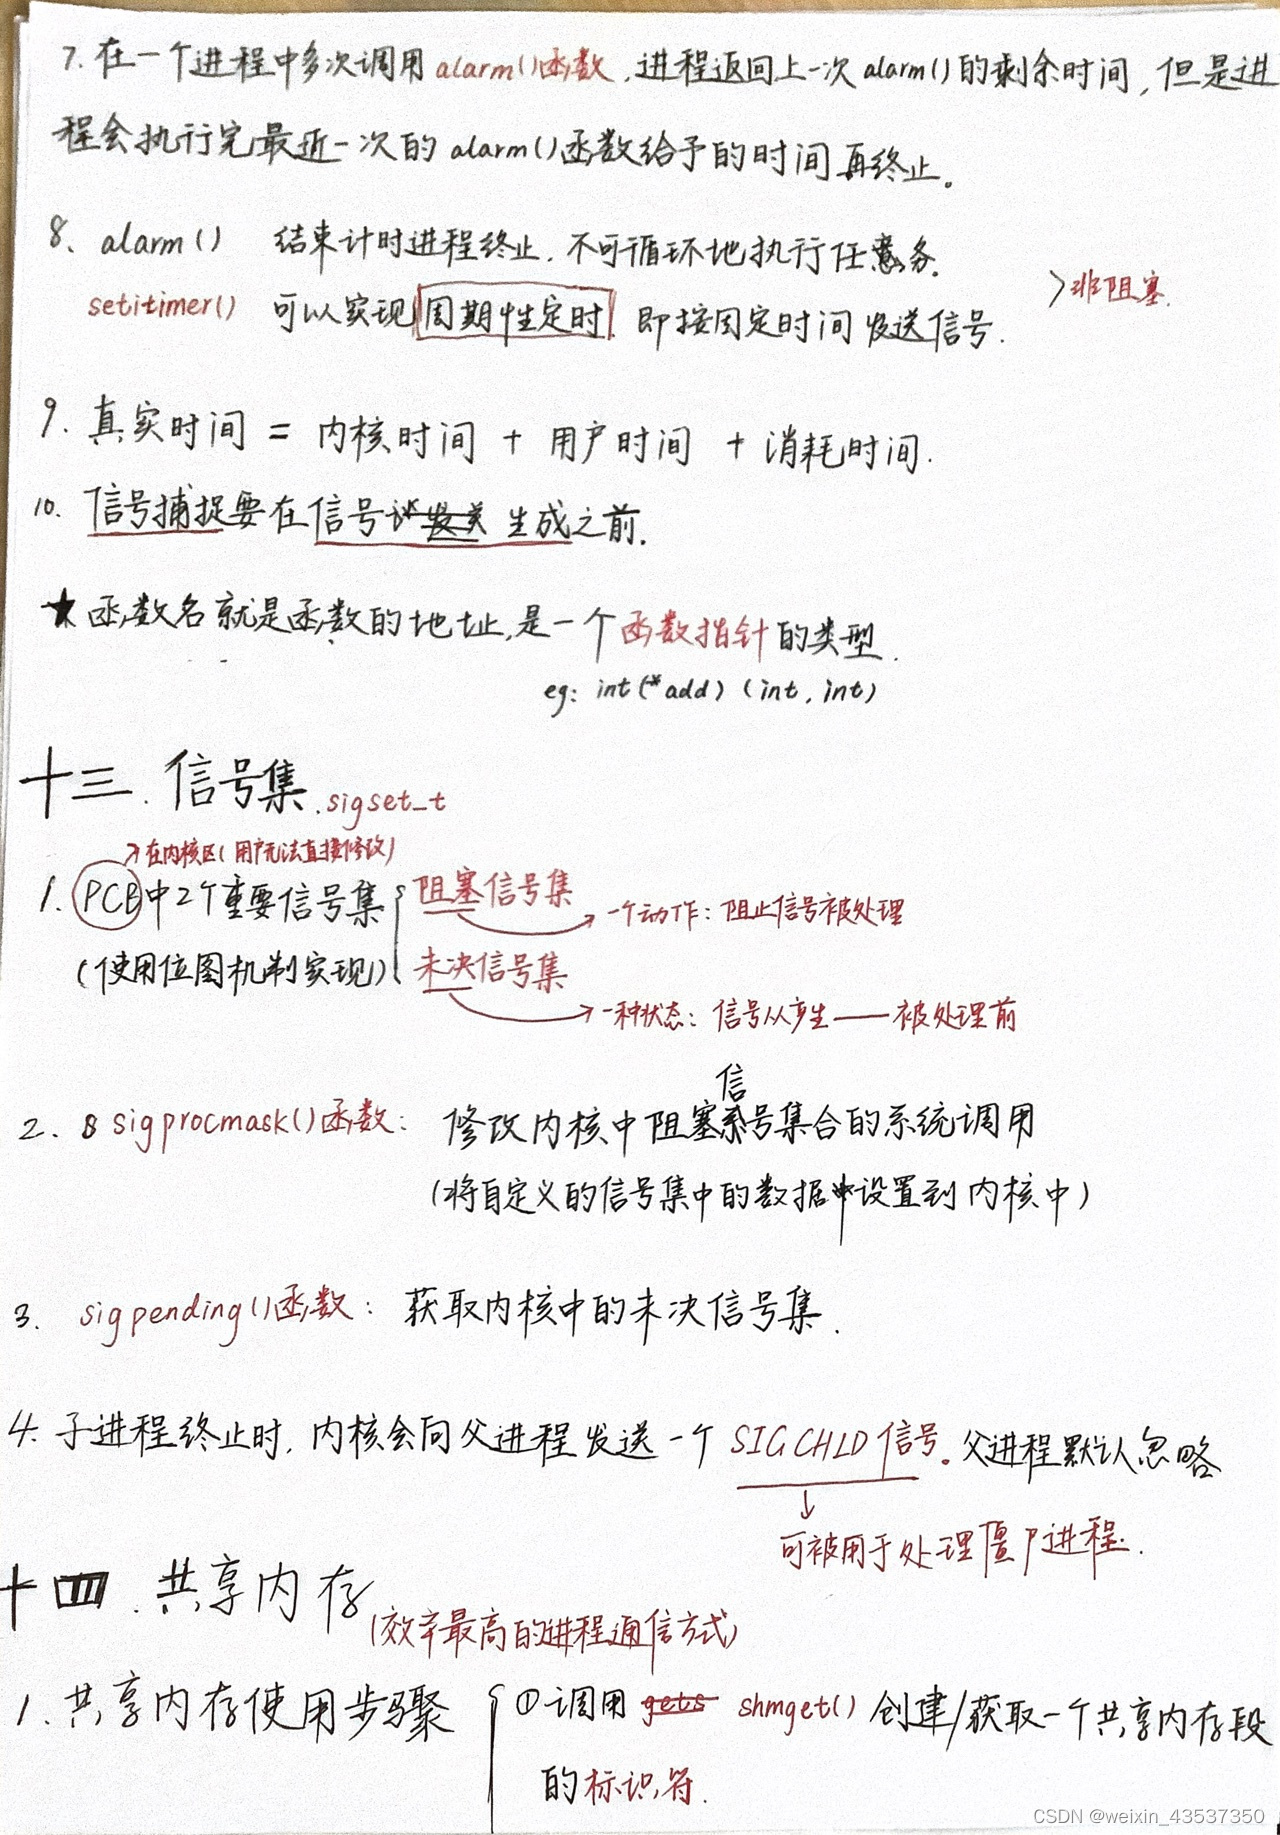 7. 在一个进程中多次调用 alarm()函数,进程返回上一次 alarm()的剩余时间,但是进
程会执行完最近一次的 alarm()函数给予的时间再终止。
8、alarm() 结束计时进程终止,不可循环地执行任务。
>非阻塞.
setitimer() 可以实现周期性定时 即按固定时间发送信号.
9. 真实时间 = 内核时间 + 用户时间 + 消耗时间.
10. 信号捕捉要在信号 生成之前.
★函数名就是函数的地址,是一个函数指针的类型.
eg: int (*add) (int, int)
十三. 信号集.sigset_t
→在内核区(用户无法直接修改)
1. PCB中2个重要信号集 { 阻塞信号集
→一个动作:阻止信号被处理
(使用位图机制实现) 未决信号集
→一种状态:信号从产生——被处理前
信
2. sigprocmask()函数: 修改内核中阻塞号集合的系统调用
(将自定义的信号集中的数据设置到内核中)
3. sigpending()函数: 获取内核中的未决信号集.
4. 子进程终止时,内核会向父进程发送一个 SIGCHLD 信号。父进程默认忽略
↓
可被用于处理僵尸进程.
十四.共享内存
(效率最高的进程通信方式)
1. 共享内存使用步骤 { ①调用 gets shmget() 创建/获取一个共享内存段
的标识符.
CSDN @weixin_43537350